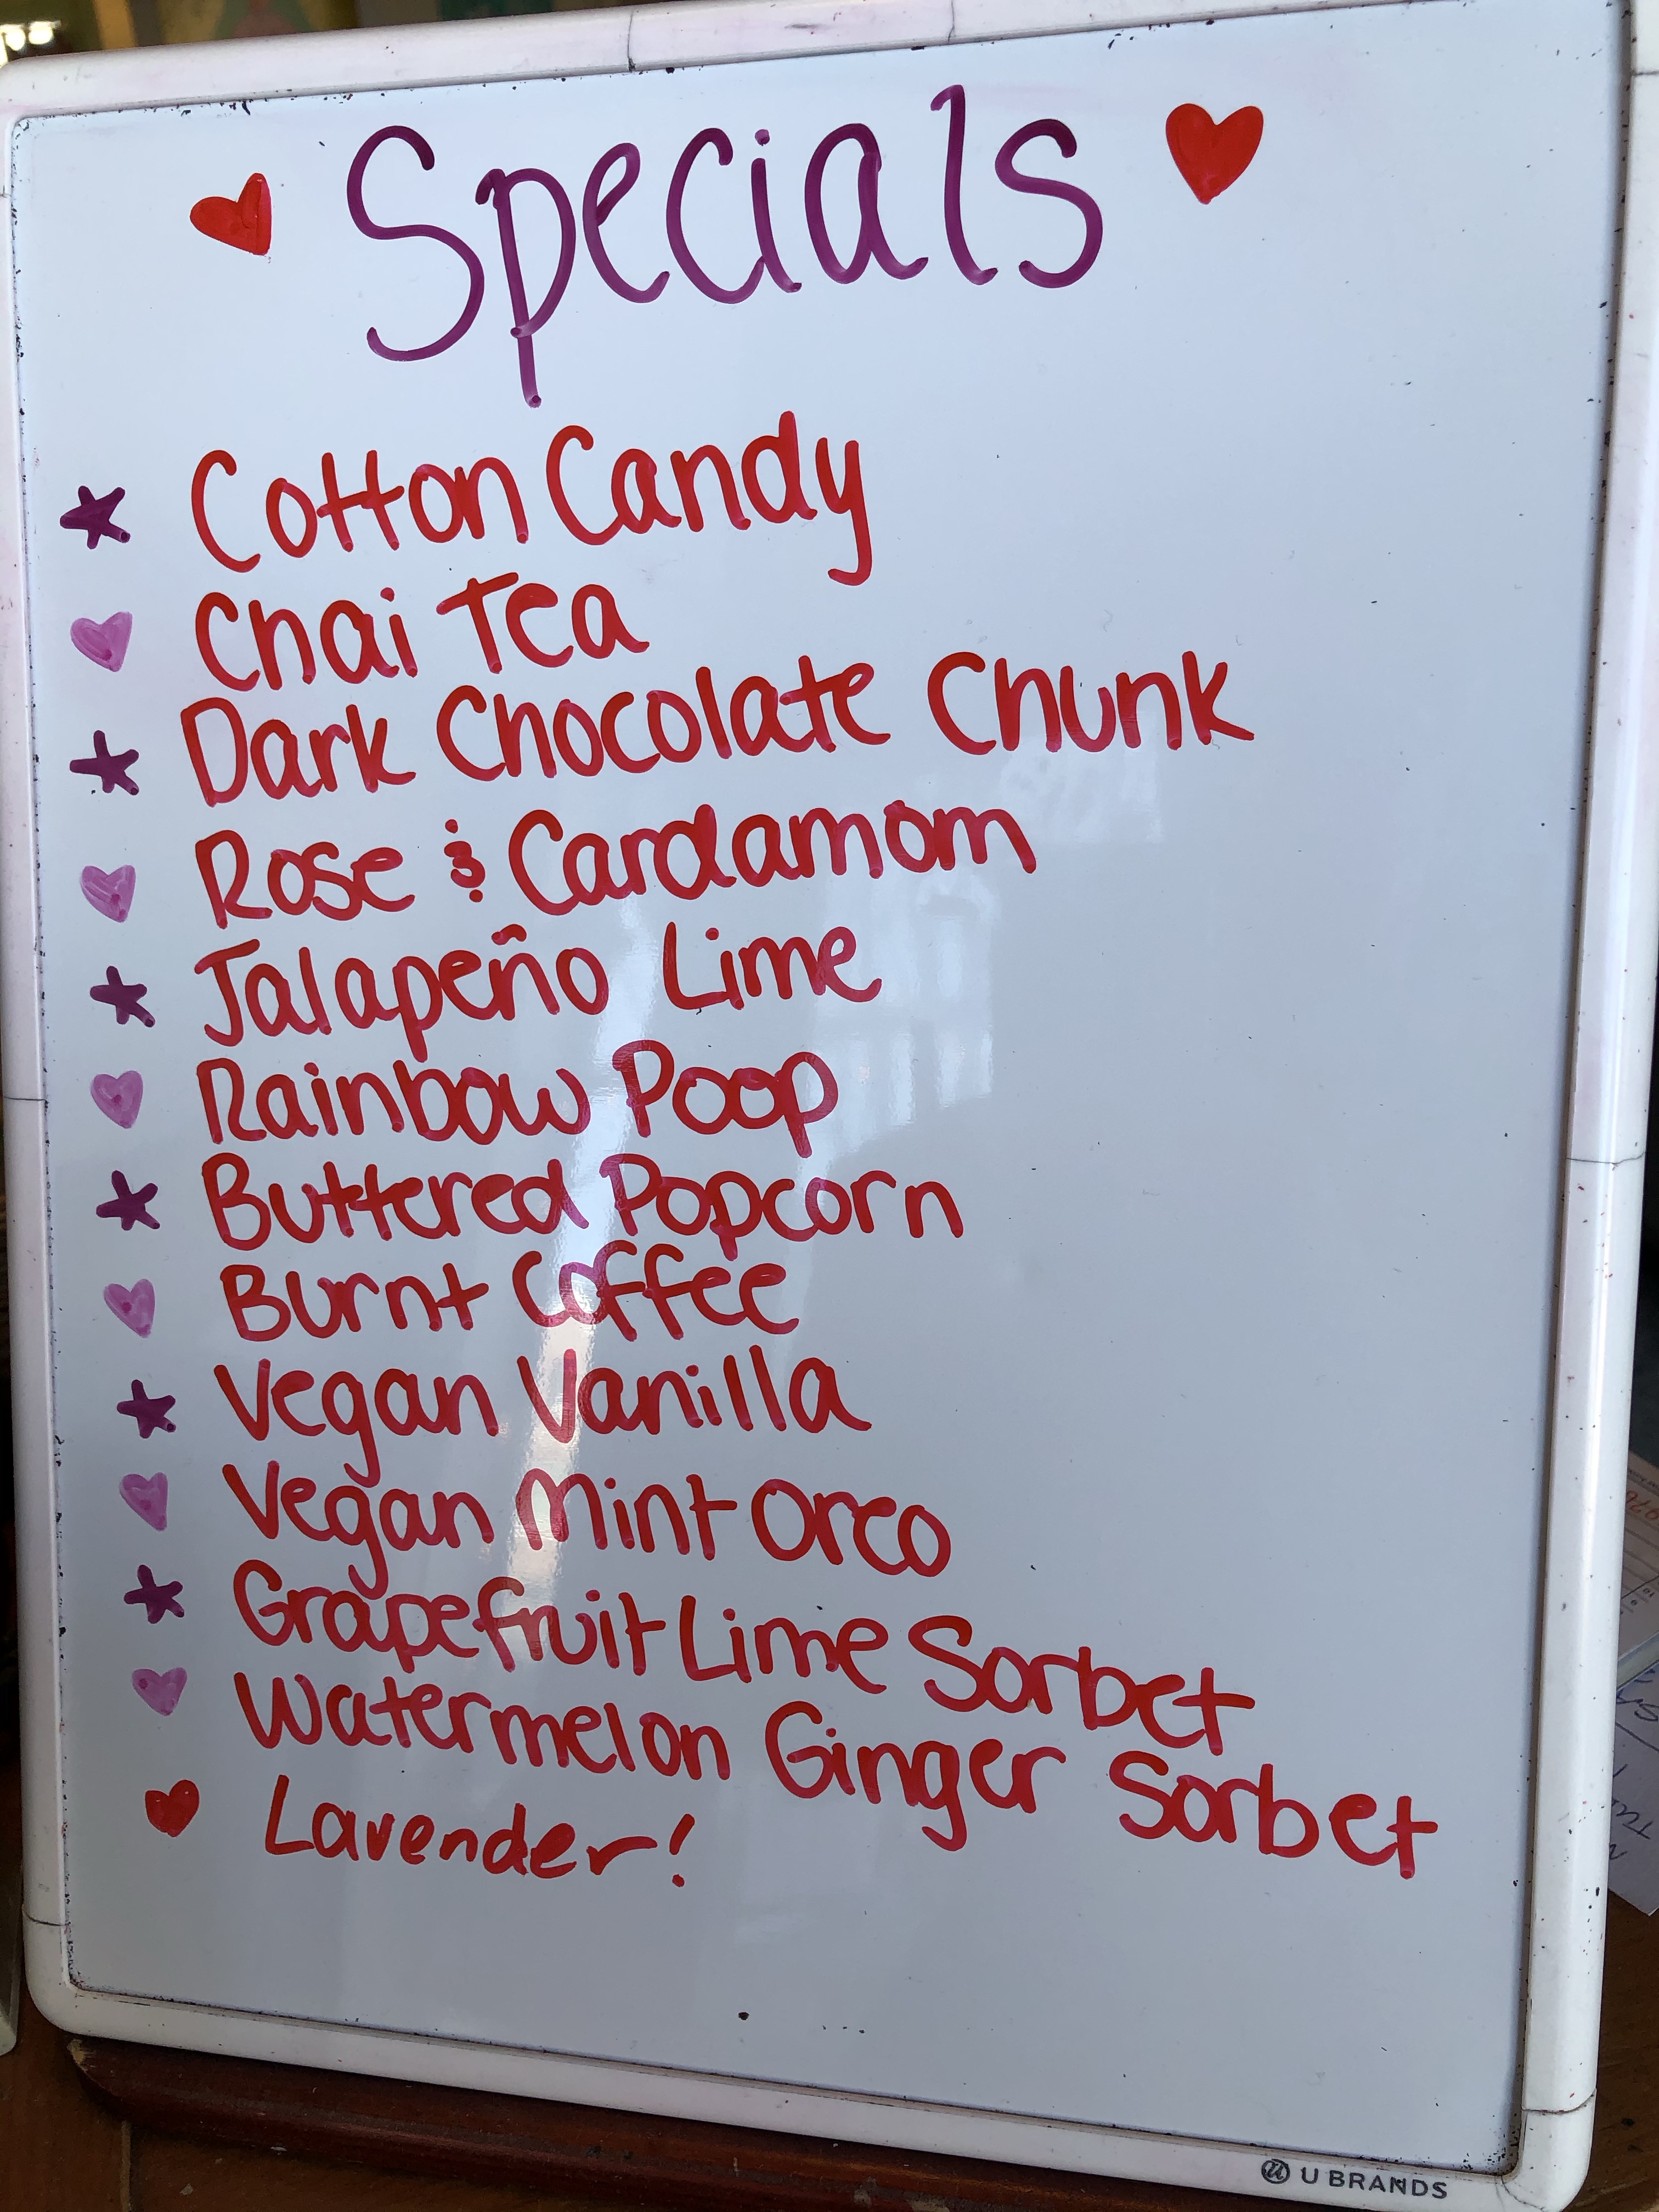 Specials
Cotton Candy
Chai Tea
Dark Chocolate Chunk
Rose & Cardamom
Jalapeño Lime
Rainbow Poop
Buttered Popcorn
Burnt Coffee
Vegan Vanilla
Vegan Mint Oreo
Grapefruit Lime Sorbet
Watermelon Ginger Sorbet
Lavender!
U BRANDS